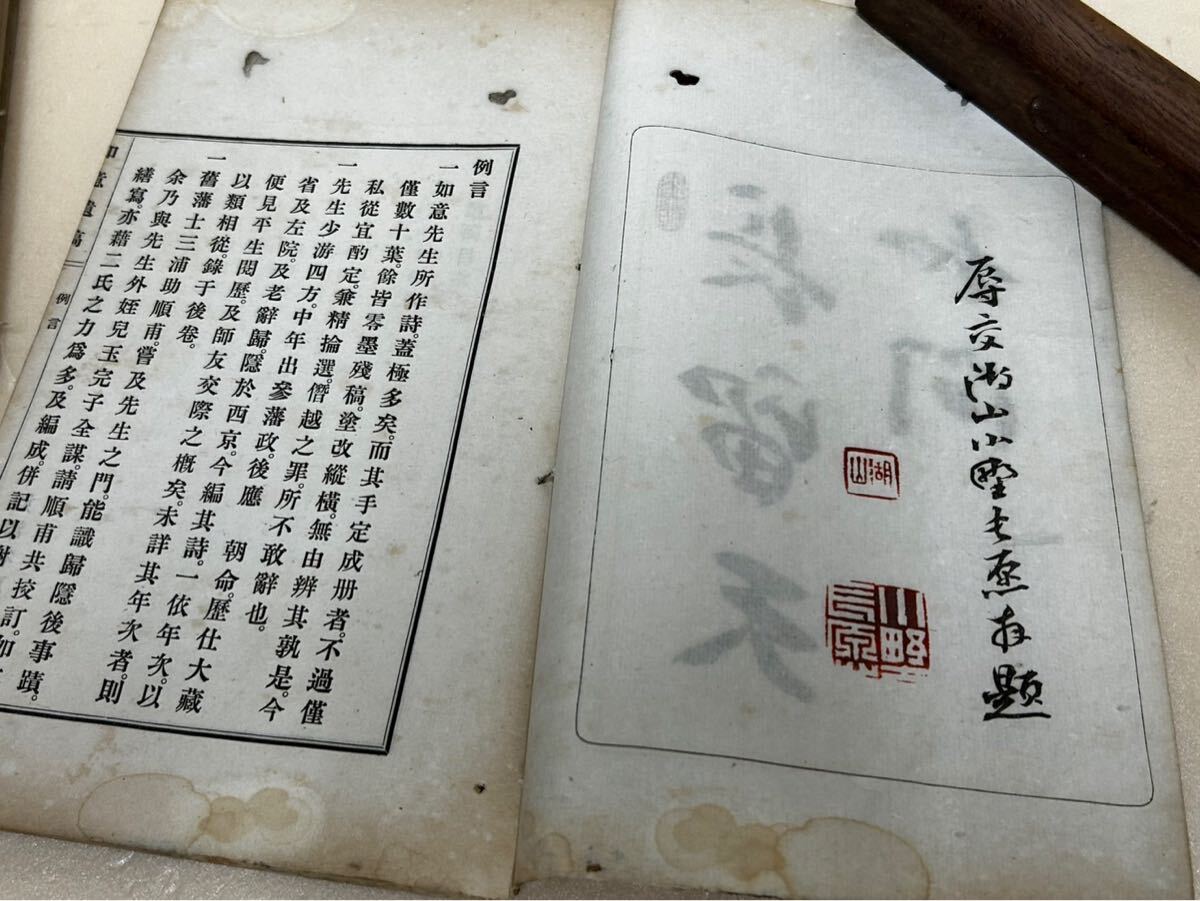 辱交湖山小野長愿拜題
湖山
小野長愿
例言
一如意先生所作詩。蓋極多矣。而其手定成册者。不過僅
僅數十葉。餘皆零墨殘稿。塗改縱橫。無由辨其孰是。今
私從宜酌定。兼精掄選。僭越之罪。所不敢辭也。
一先生少游四方。中年出參藩政。後應　朝命。歷仕大藏
省及左院。及老辭歸。隱於西京。今編其詩。一依年次。以
便見平生閱歷。及師友交際之概矣。未詳其年次者。則
以類相從。錄于後卷。
一舊藩士三浦助順甫。嘗及先生之門。能識歸隱後事蹟。
余乃與先生外姪兒玉完子全謀。請順甫共挍訂。如
繕寫。亦藉二氏之力爲多。及編成。併記以
如意遺稿
例言